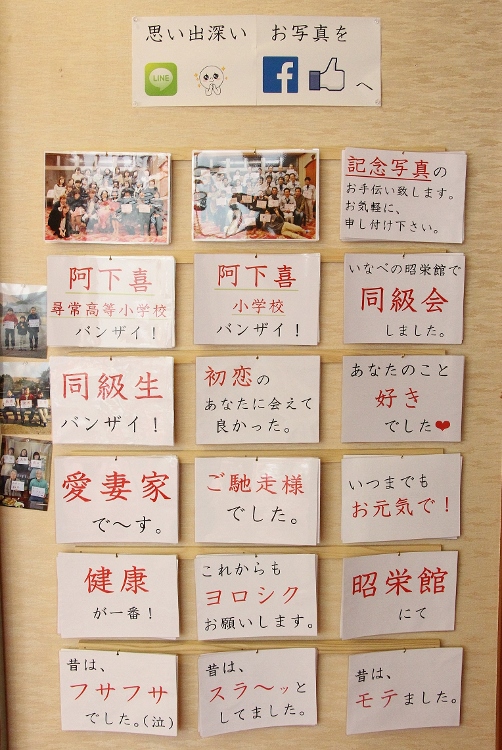 思い出深い お写真を
LINE
へ
記念写真の
お手伝い致します。
お気軽に、
申し付け下さい。
阿下喜
尋常高等小学校
バンザイ！
阿下喜
小学校
バンザイ！
いなべの昭栄館で
同級会
しました。
同級生
バンザイ！
初恋の
あなたに会えて
良かった。
あなたのこと
好き
でした❤
愛妻家
で～す。
ご馳走様
でした。
いつまでも
お元気で！
健康
が一番！
これからも
ヨロシク
お願いします。
昭栄館
にて
昔は、
フサフサ
でした。(泣)
昔は、
スラ～ッと
してました。
昔は、
モテました。